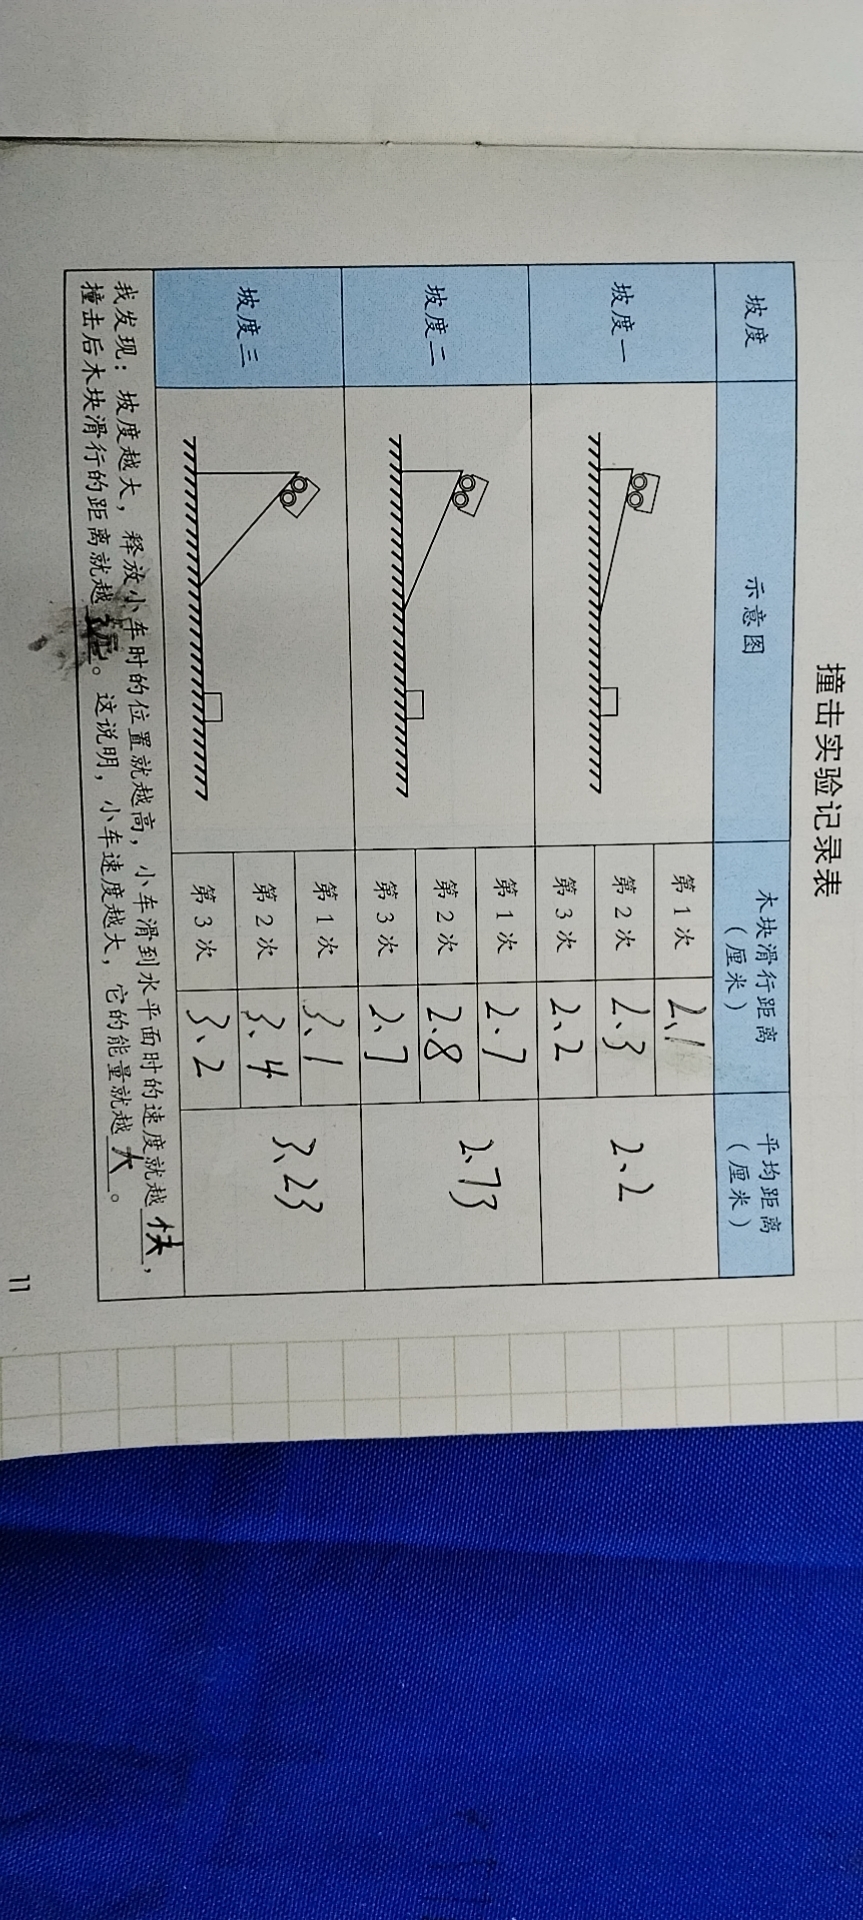 撞击实验记录表
坡度 示意图 木块滑行距离（厘米） 平均距离（厘米）
坡度一 第1次 2、1 2、2
第2次 2、3
第3次 2、2
坡度二 第1次 2、7 2、73
第2次 2、8
第3次 2、7
坡度三 第1次 3、1 3、23
第2次 3、4
第3次 3、2
我发现：坡度越大，释放小车时的位置就越高，小车滑到水平面时的速度就越快，
撞击后木块滑行的距离就越。这说明，小车速度越大，它的能量就越大。
11